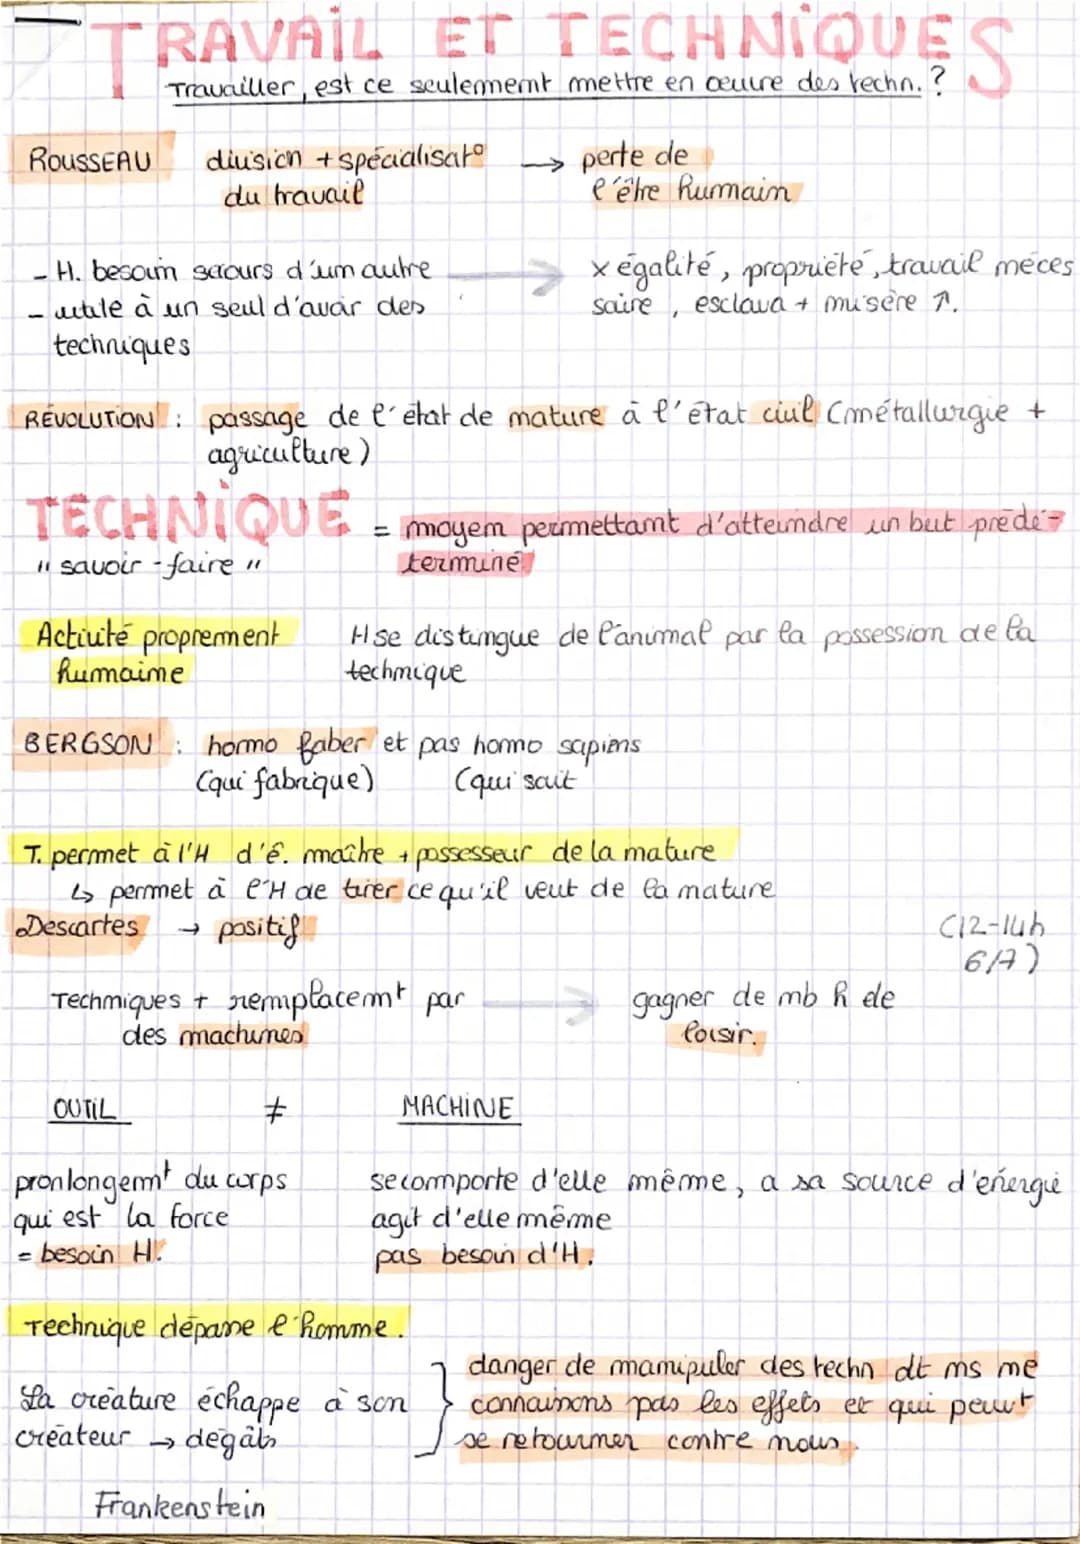 TRAVAIL ET TECHNIQUES
Travailler, est ce seulement mettre en œuvre des techn.?
ROUSSEAU division + spécialisat° → perte de
du travail l'être humain
- H. besoin secours d'um autre → x égalité, propriété, travail néces
- utile à un seul d'avoir des saire, esclava + misère ↗.
techniques
RÉVOLUTION : passage de l'état de nature à l'état civil (métallurgie +
agriculture)
TECHNIQUE = moyen permettant d'atteindre un but prédé-
" savoir-faire " terminé
Activité proprement H se distingue de l'animal par la possession de la
humaine technique
BERGSON : homo faber et pas homo sapiens
(qui fabrique) (qui sait
T. permet à l'H d'ê. maître + possesseur de la nature
↳ permet à l'H de tirer ce qu'il veut de la nature
Descartes → positif (12-14h
6/7)
Techniques + remplacemt par → gagner de nb h de
des machines loisir.
OUTIL ≠ MACHINE
pronlongemt du corps se comporte d'elle même, a sa source d'énergie
qui est la force agit d'elle même
= besoin H. pas besoin d'H.
Technique dépasse l'homme.
danger de manipuler des techn dt ns ne
La créature échappe à son connaissons pas les effets et qui peuvt
créateur → dégâts se retourner contre nous.
Frankenstein